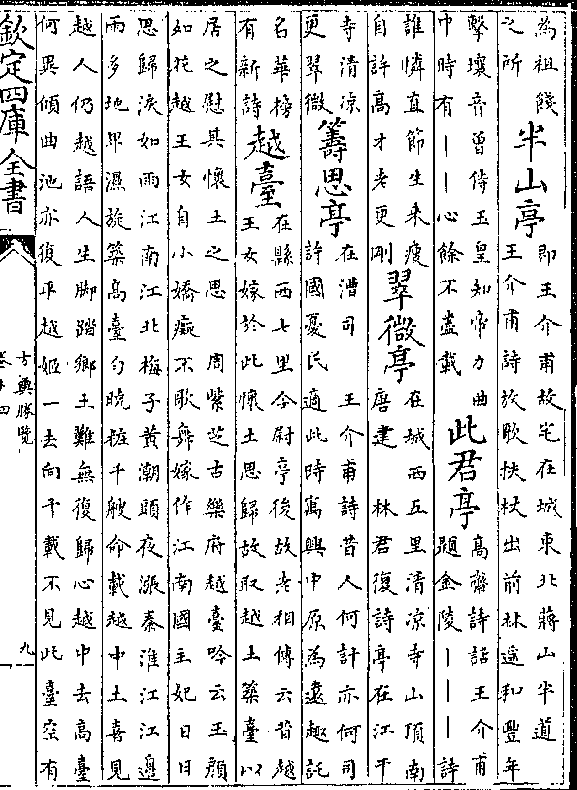 為祖餞
之所
半山亭
即王介甫故宅在城東北蔣山半道
王介甫詩放歌扶杖出前林遥和豐年
擊壤音曽侍玉皇知帝力曲
中時有｜｜心餘不盡載
此君亭
高齋詩話王介甫
題金陵｜｜｜詩
誰憐直節生來瘦
自許高才老更剛
翠微亭
在城西五里清凉寺山頂南
唐建　林君復詩亭在江干
寺清凉
更翠微
籌思亭
在漕司　王介甫詩昔人何計亦何司
許國憂民適此時寓興中原為逺趣託
名華榜
有新詩
越臺
在縣西七里今尉亭後故老相傳云昔越
王女嫁於此懷土思歸故取越土築臺以
居之慰其懷土之思　周紫芝古樂府越臺吟云玉顔
如花越王女自小嬌癡不歌舞嫁作江南國主妃日日
思歸淚如雨江南江北梅子黄潮頭夜漲秦淮江江邊
雨多地卑濕旋築高臺勻曉粧千艘命載越中土喜見
越人仍越語人生脚踏鄉土難無復歸心越中去高臺
何異傾曲池亦復平越姬一去向千載不見此臺空有
欽定四庫全書
方輿勝覽
卷十四
九